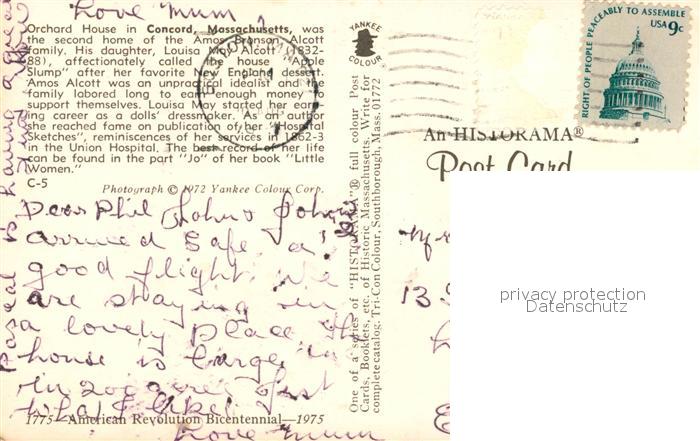 Love Mum
Orchard House in Concord, Massachusetts, was
the second home of the Amos Bronson Alcott
family. His daughter, Louisa May Alcott (1832-
88), affectionately called the house "Apple
Slump" after her favorite New England dessert.
Amos Alcott was an unpractical idealist and the
family labored long to earn enough money to
support themselves. Louisa May started her earn-
ing career as a dolls' dressmaker. As an author
she reached fame on publication of her "Hospital
Sketches", reminiscences of her services in 1862-3
in the Union Hospital. The best record of her life
can be found in the part "Jo" of her book "Little
Women."
C-5
Photograph © 1972 Yankee Colour Corp.
Dear Phil John
arrived safe a
good flight We
are staying in
a lovely place the
house is large
in 20 acre
what I like
1775—American Revolution Bicentennial—1975
Love Mum
having a great
YANKEE
COLOUR
One of a series of "HISTORAMA"® full colour Post
Cards, Booklets, etc. of Historic Massachusetts. Write for
complete catalog. Tri-Con Colour, Southborough, Mass. 01772
RIGHT OF PEOPLE PEACEABLY TO ASSEMBLE
USA 9c
An HISTORAMA®
Post Card
13
privacy protection
Datenschutz